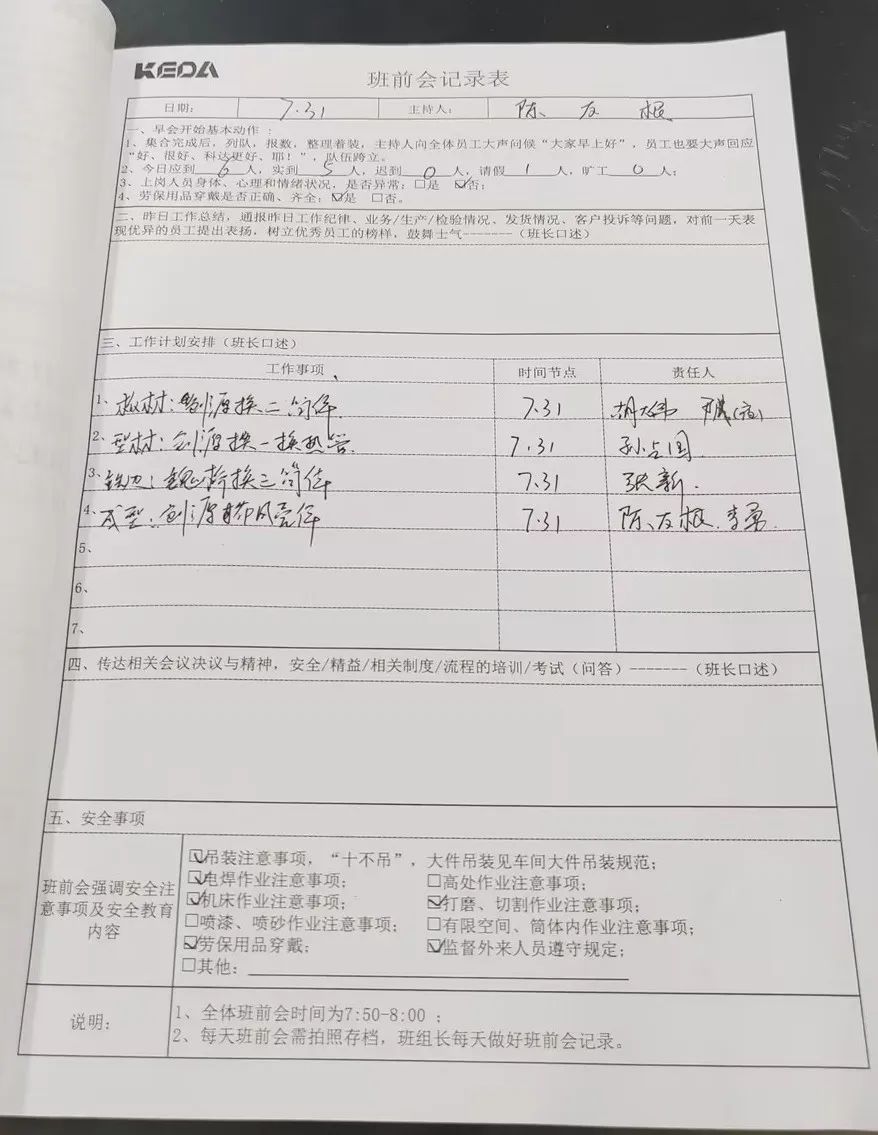 KEDA
班前会记录表
日期： 7.31 主持人： 陈友根
一、早会开始基本动作：
1、集合完成后，列队，报数，整理着装，主持人向全体员工大声问候“大家早上好”，员工也要大声回应
“好、很好、科达更好、耶！”，队伍跨立。
2、今日应到 6 人，实到 5 人，迟到 0 人，请假 1 人，旷工 0 人；
3、上岗人员身体、心理和情绪状况，是否异常：□是 ☑否；
4、劳保用品穿戴是否正确、齐全：☑是 □否。
二、昨日工作总结，通报昨日工作纪律、业务/生产/检验情况、发货情况、客户投诉等问题，对前一天表
现优异的员工提出表扬，树立优秀员工的榜样，鼓舞士气-------（班长口述）
三、工作计划安排（班长口述）
工作事项 时间节点 责任人
1、板材：创源换二筒件 7.31 胡大伟
2、型材：创源换一换热管 7.31 孙占国
3、铣刀：魏桥换三筒体 7.31 张新
4、成型：创源 风壳件 7.31 陈友根、李勇
5、
6、
7、
四、传达相关会议决议与精神，安全/精益/相关制度/流程的培训/考试（问答）-------（班长口述）
五、安全事项
班前会强调安全注
意事项及安全教育
内容
☑吊装注意事项，“十不吊”，大件吊装见车间大件吊装规范；
☑电焊作业注意事项； □高处作业注意事项；
☑机床作业注意事项； ☑打磨、切割作业注意事项；
□喷漆、喷砂作业注意事项； □有限空间、筒体内作业注意事项；
☑劳保用品穿戴； ☑监督外来人员遵守规定；
□其他：
说明：
1、全体班前会时间为7:50-8:00 ；
2、每天班前会需拍照存档，班组长每天做好班前会记录。